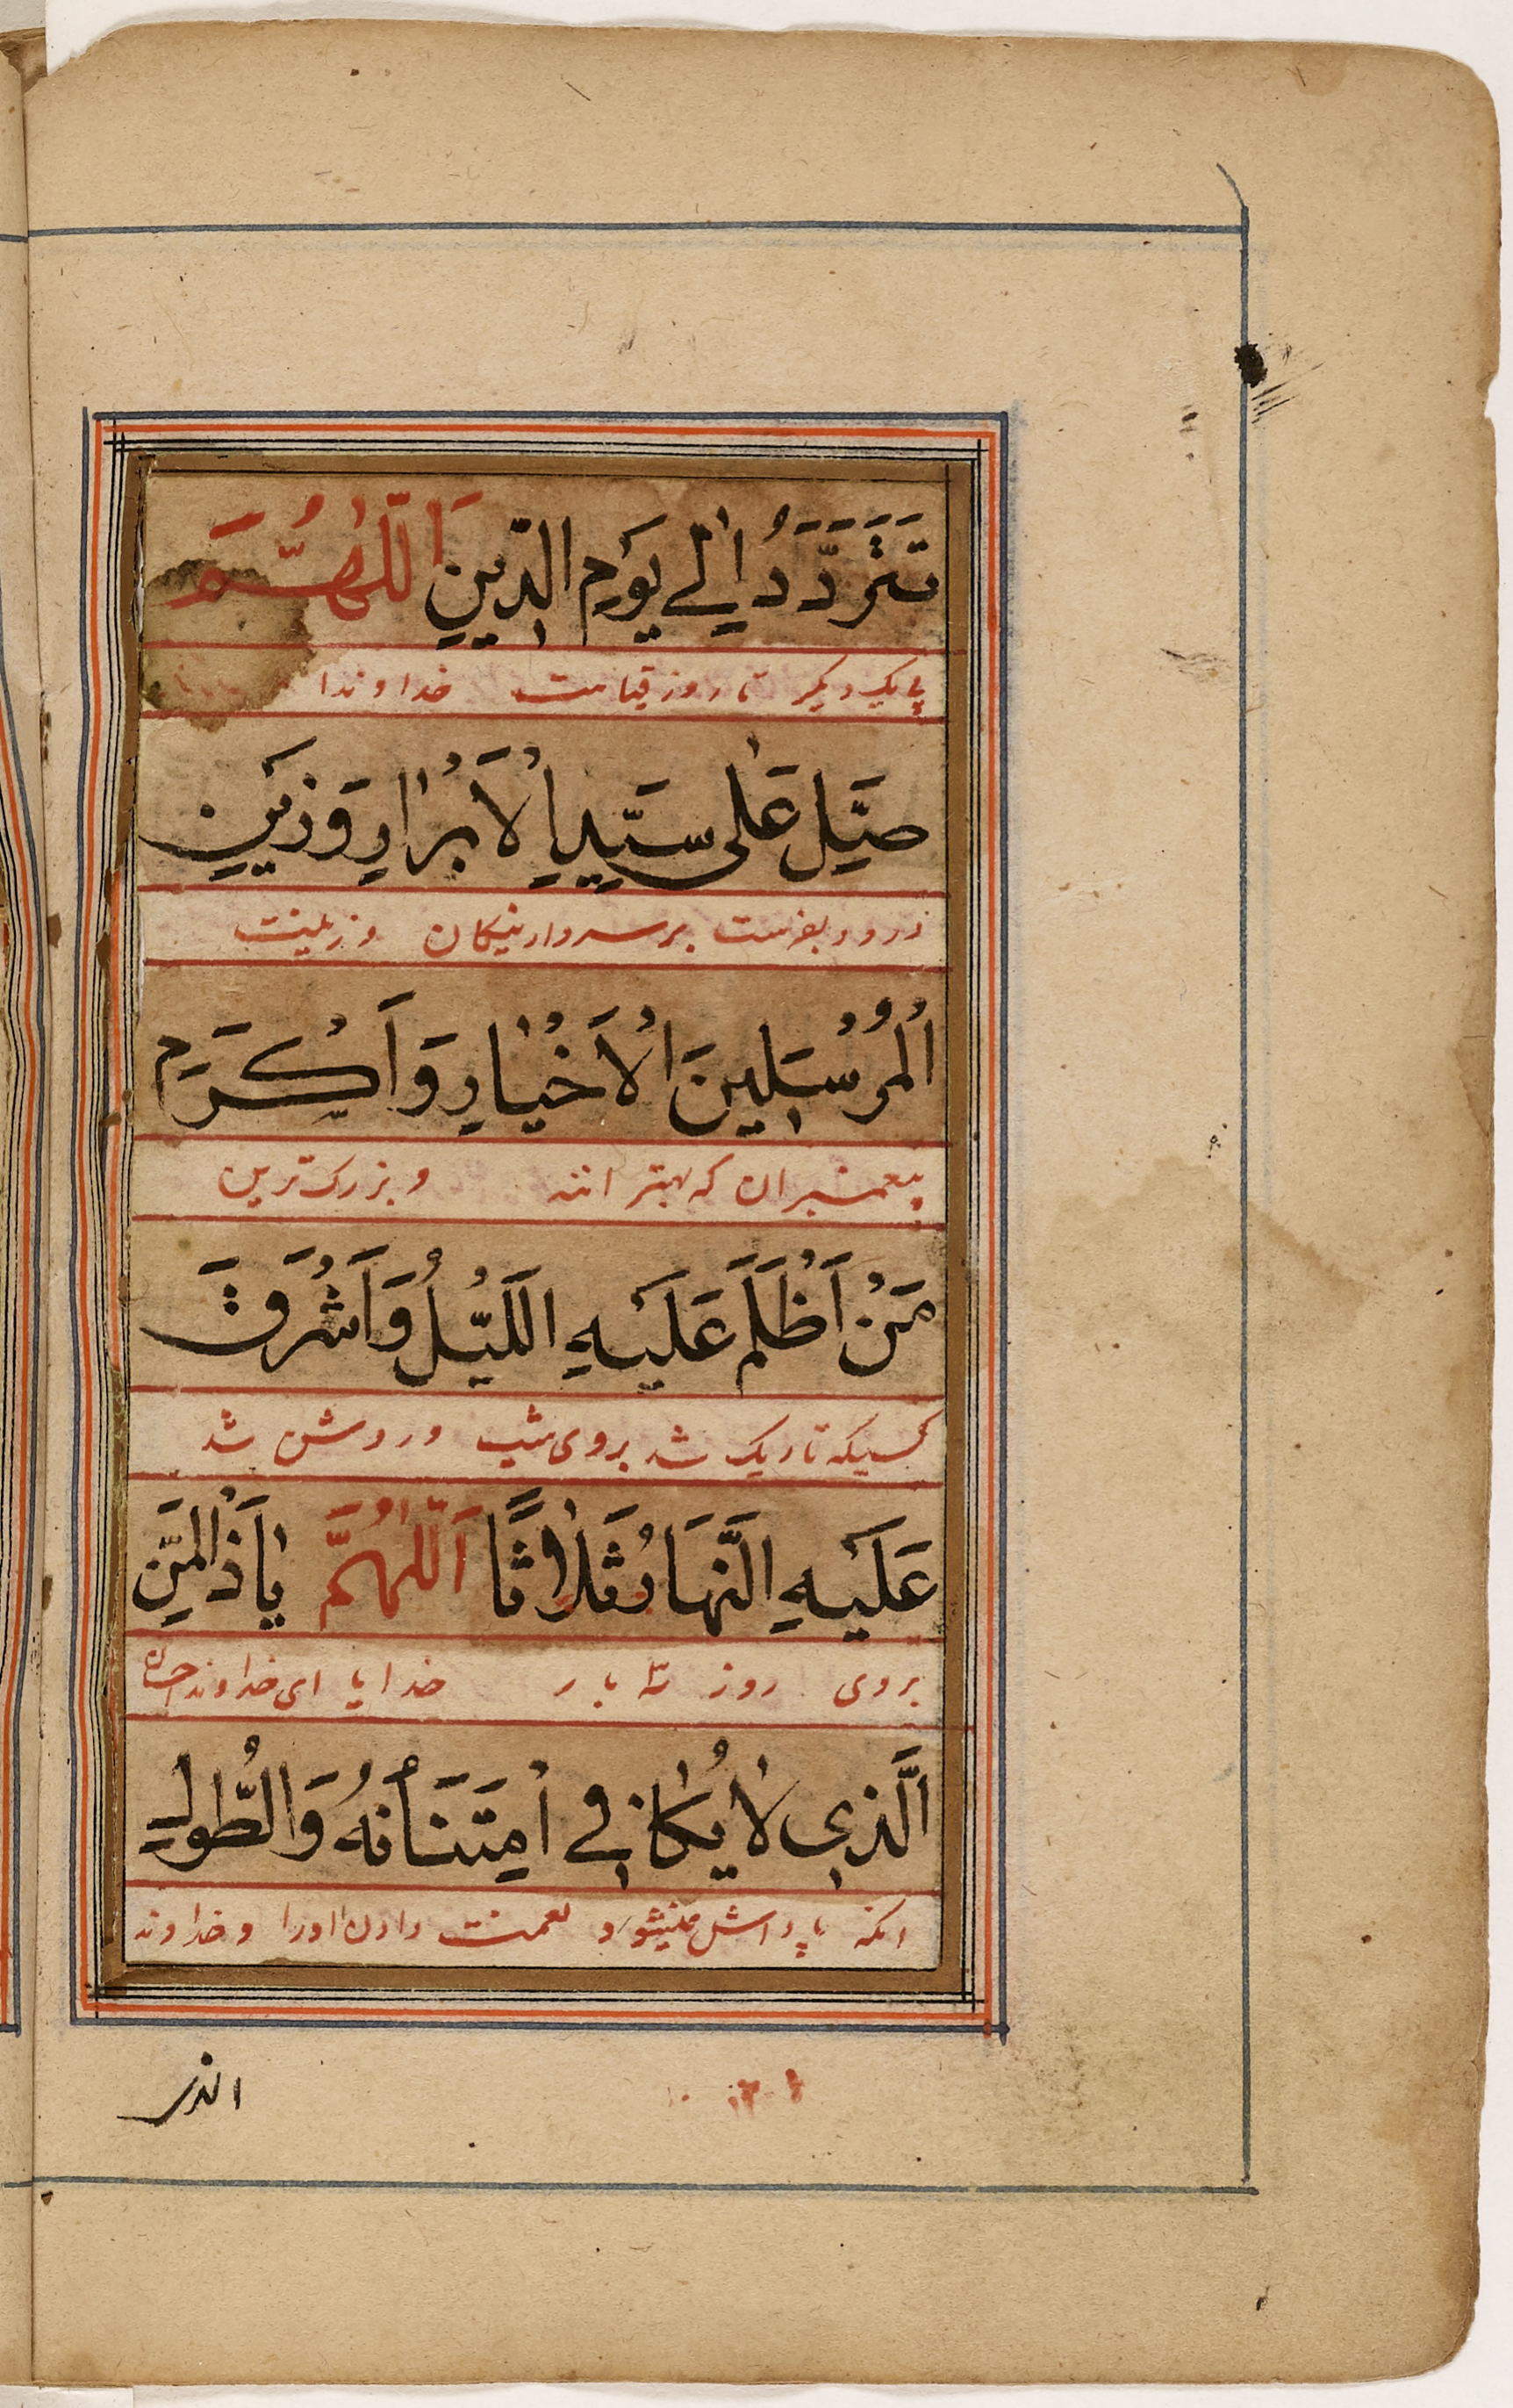 تَتَرَدَّدُ اِلٰے يَوْمِ الدّٖينِ اَللّٰهُـمَّ
پایکدیگر تا روز قیامت خداوندا
صَلِّ عَلٰى سَيِّدِ الْاَبْرٰارِ وَزَيْنِ
درود بفرست بر سردار نیکان و زینت
اَلْمُرْسَلٖينَ الْاَخْيٰارِ وَاَكْرَمِ
پیغمبران که بهترانند و بزرک‌ترین
مَنْ اَظْلَمَ عَلَيْهِ اللَّيْلُ وَاَشْرَقَ
کسیکه تاریک شد بروی شب و روشن شد
عَلَيْهِ النَّهَارُ ثَلٰاثًا اَللّٰهُمَّ يٰاذَالْمَنِّ
بروی روز سه بار خدایا ای خداوند احسان
اَلَّذٖى لٰا يُكٰافٖے اِمْتَنَانُهُ وَالطُّوْلِ
انکه پاداش نمیشود نعمت دادن اورا و خداوند
الذی